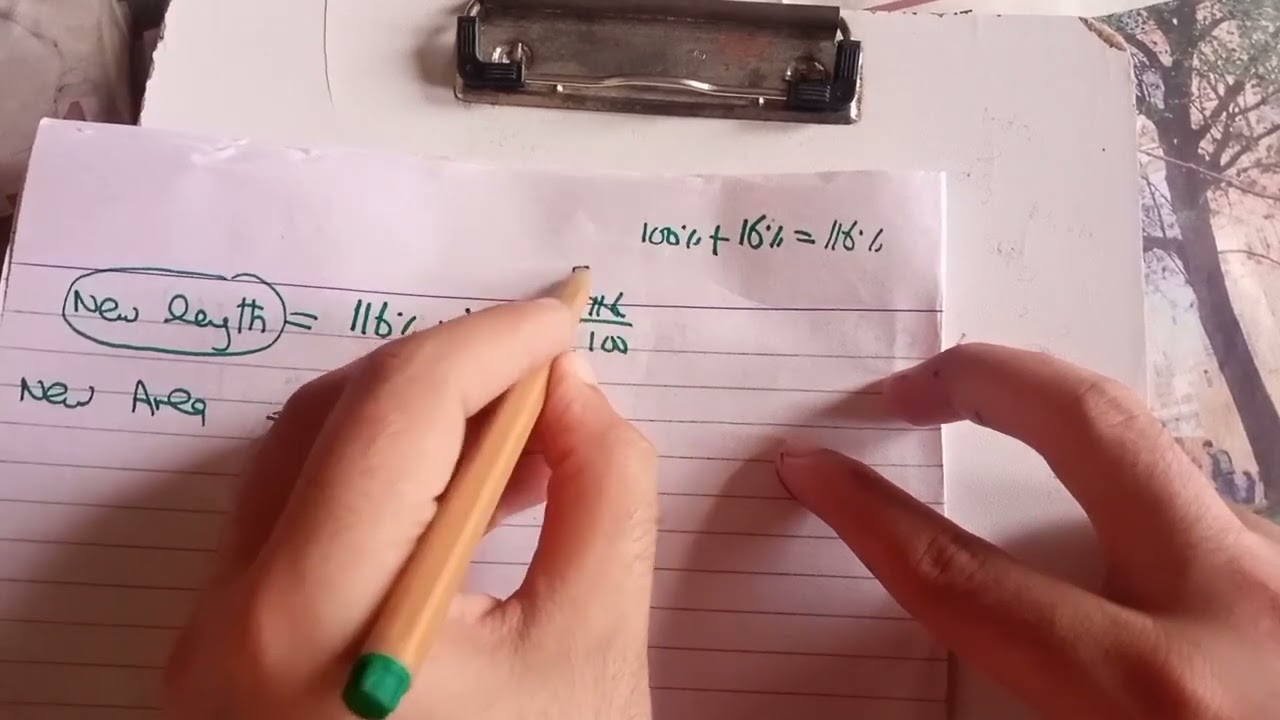 100% + 16% = 116%
New length = 116% 116/100
New Area